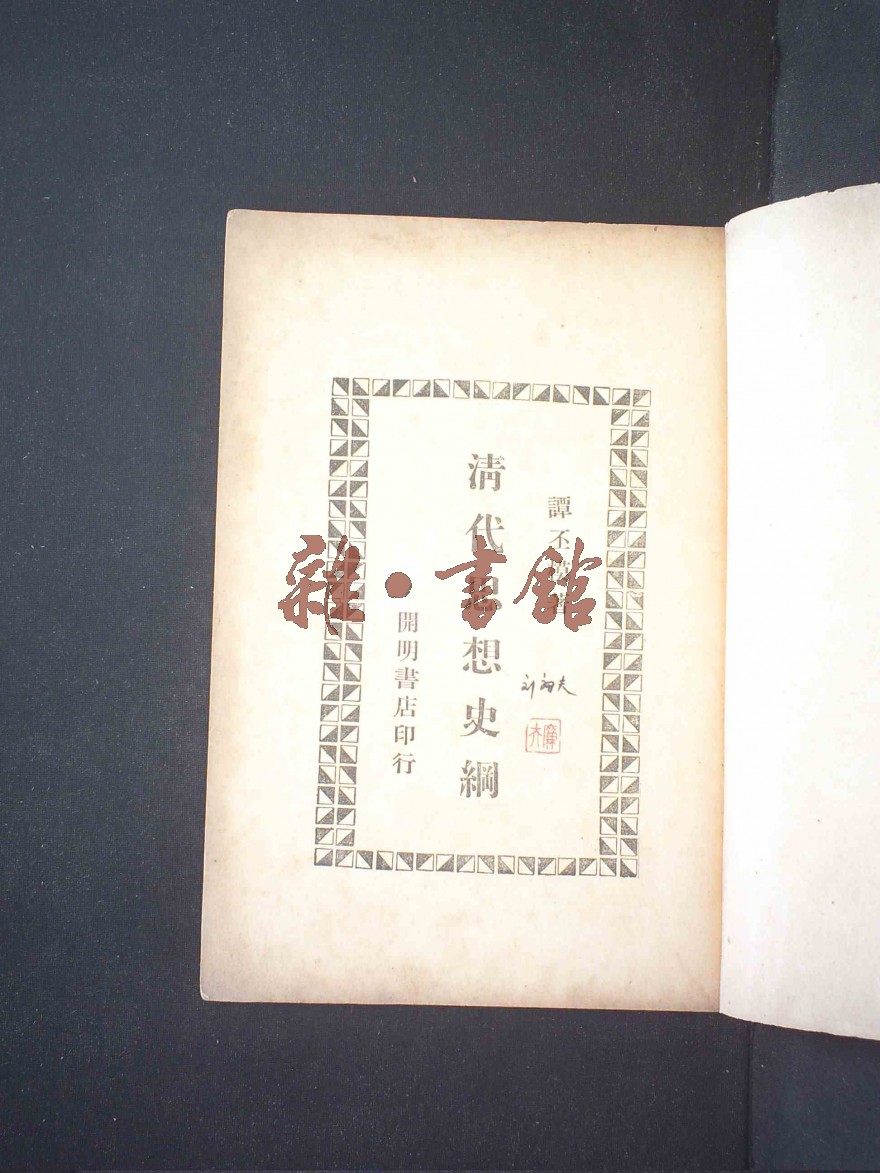 譚丕模著
清代思想史綱
開明書店印行
雜·書館